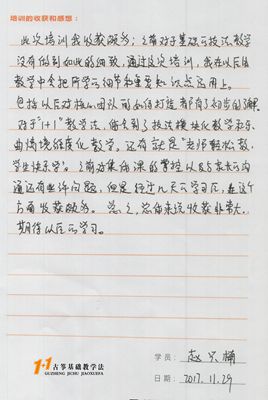 培训的收获和感想：
此次培训我收获颇多；之前对于基础云技法教学
没有做到如此的细致，通过这次培训，我在以后
教学中会把所学云细节和重要知识点运用上。
包括以后对核心团队可如何打造 都有了初步的了解
对于"1+1"教学法，体会到了技法模块化教学和乐
曲情境维度化教学。还有就是"老师轻松教，
学生快乐学"。之前对集体课的掌控以及与家长云沟
通还有些许问题，但是经过几天云学习后，在这个
方面收获颇多。总之，总体来说收获非常大，
期待以后云学习。
1+1 古筝基础教学法
GUZHENG JICHU JIAOXUEFA
学员：赵
日期：2017.11.29